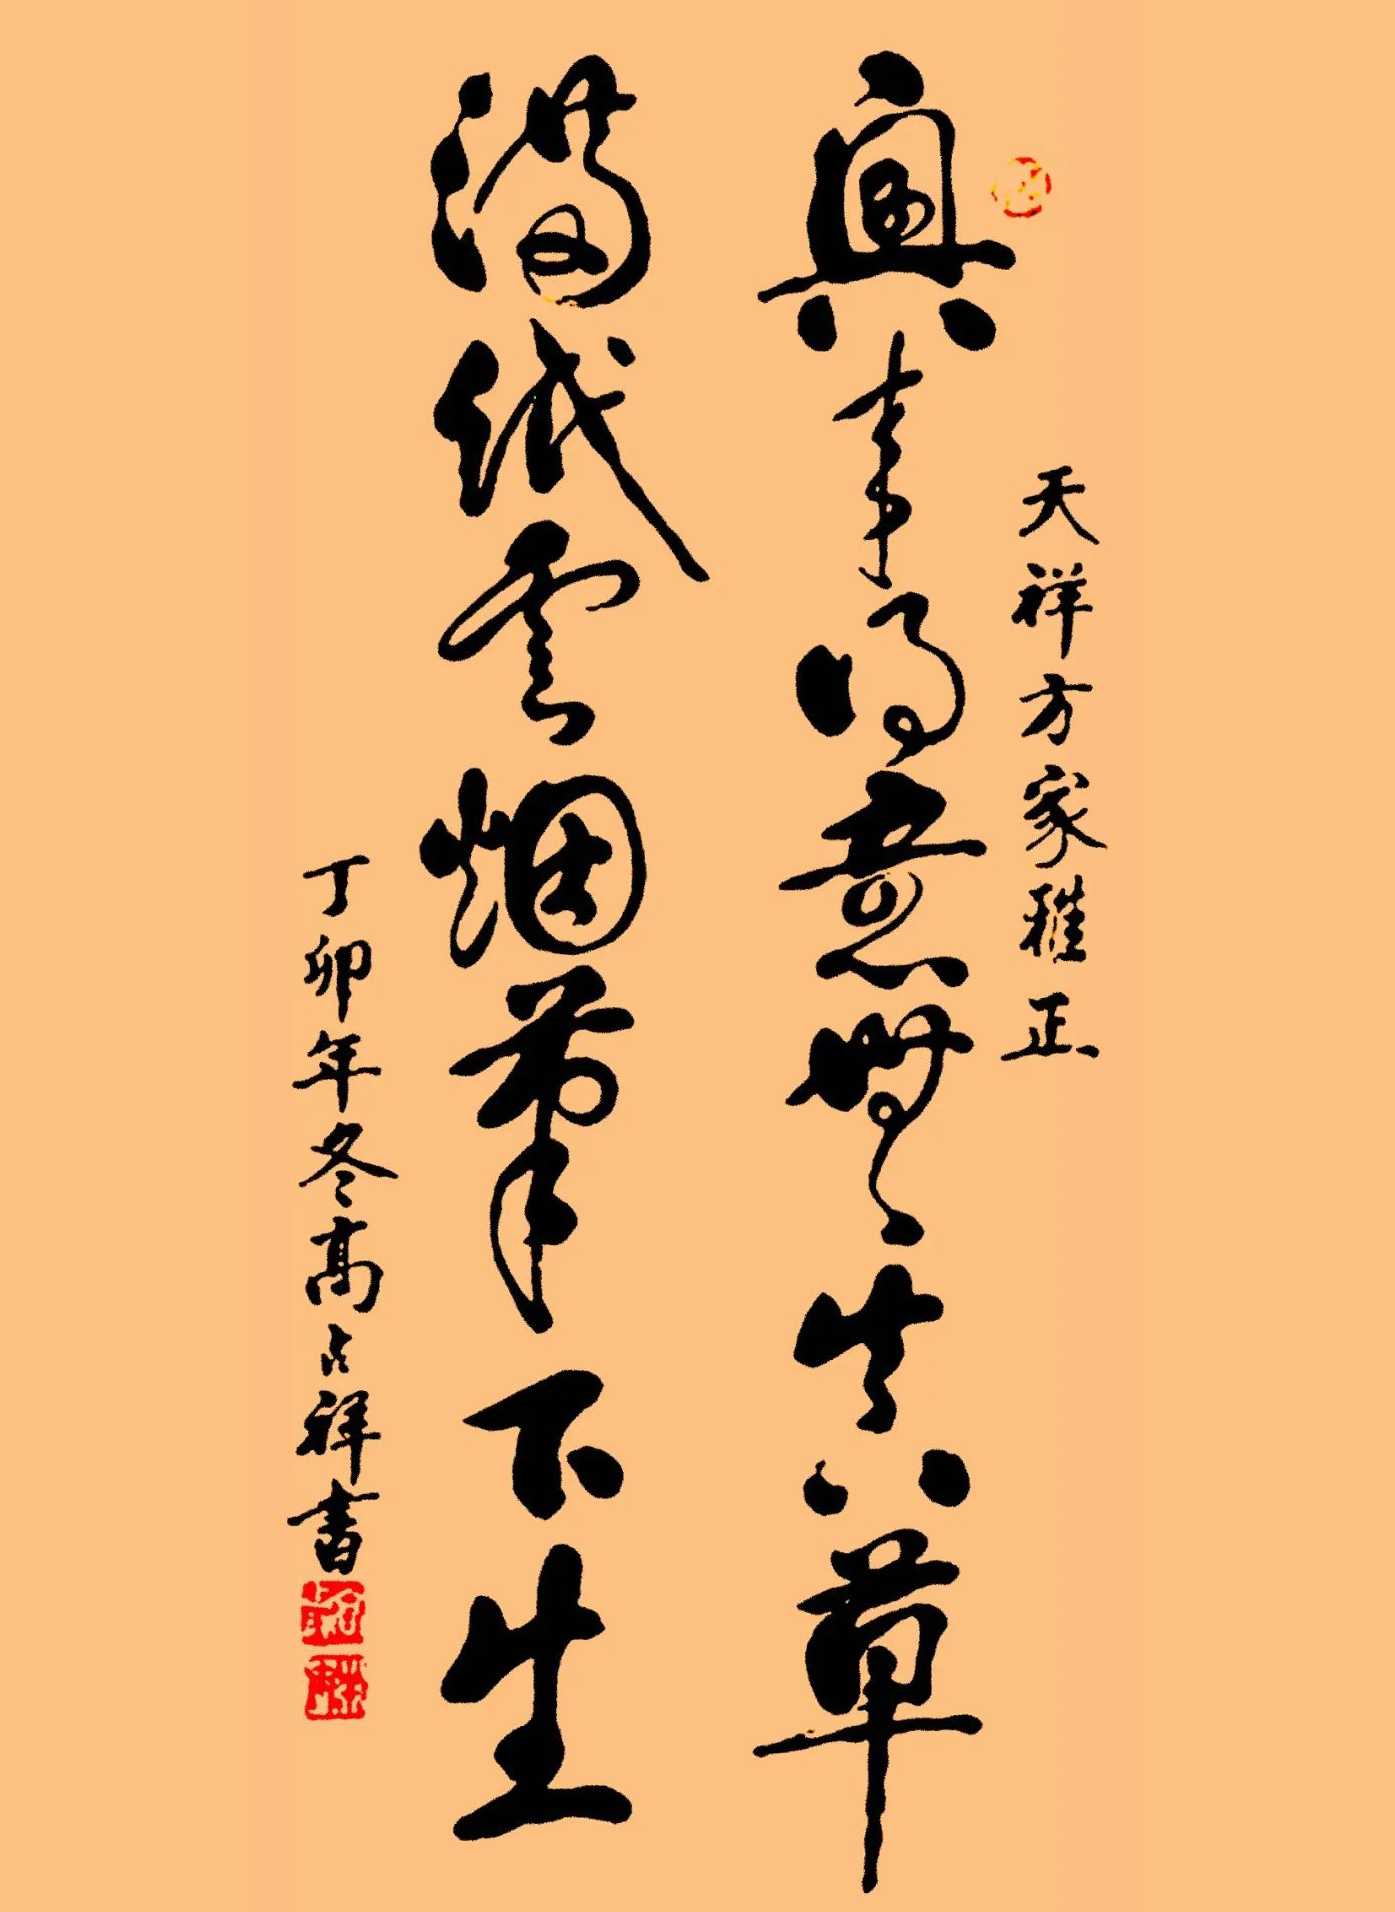 天祥方家雅正
興来得意無真草
滿紙雲烟筆下生
丁卯年冬高占祥書